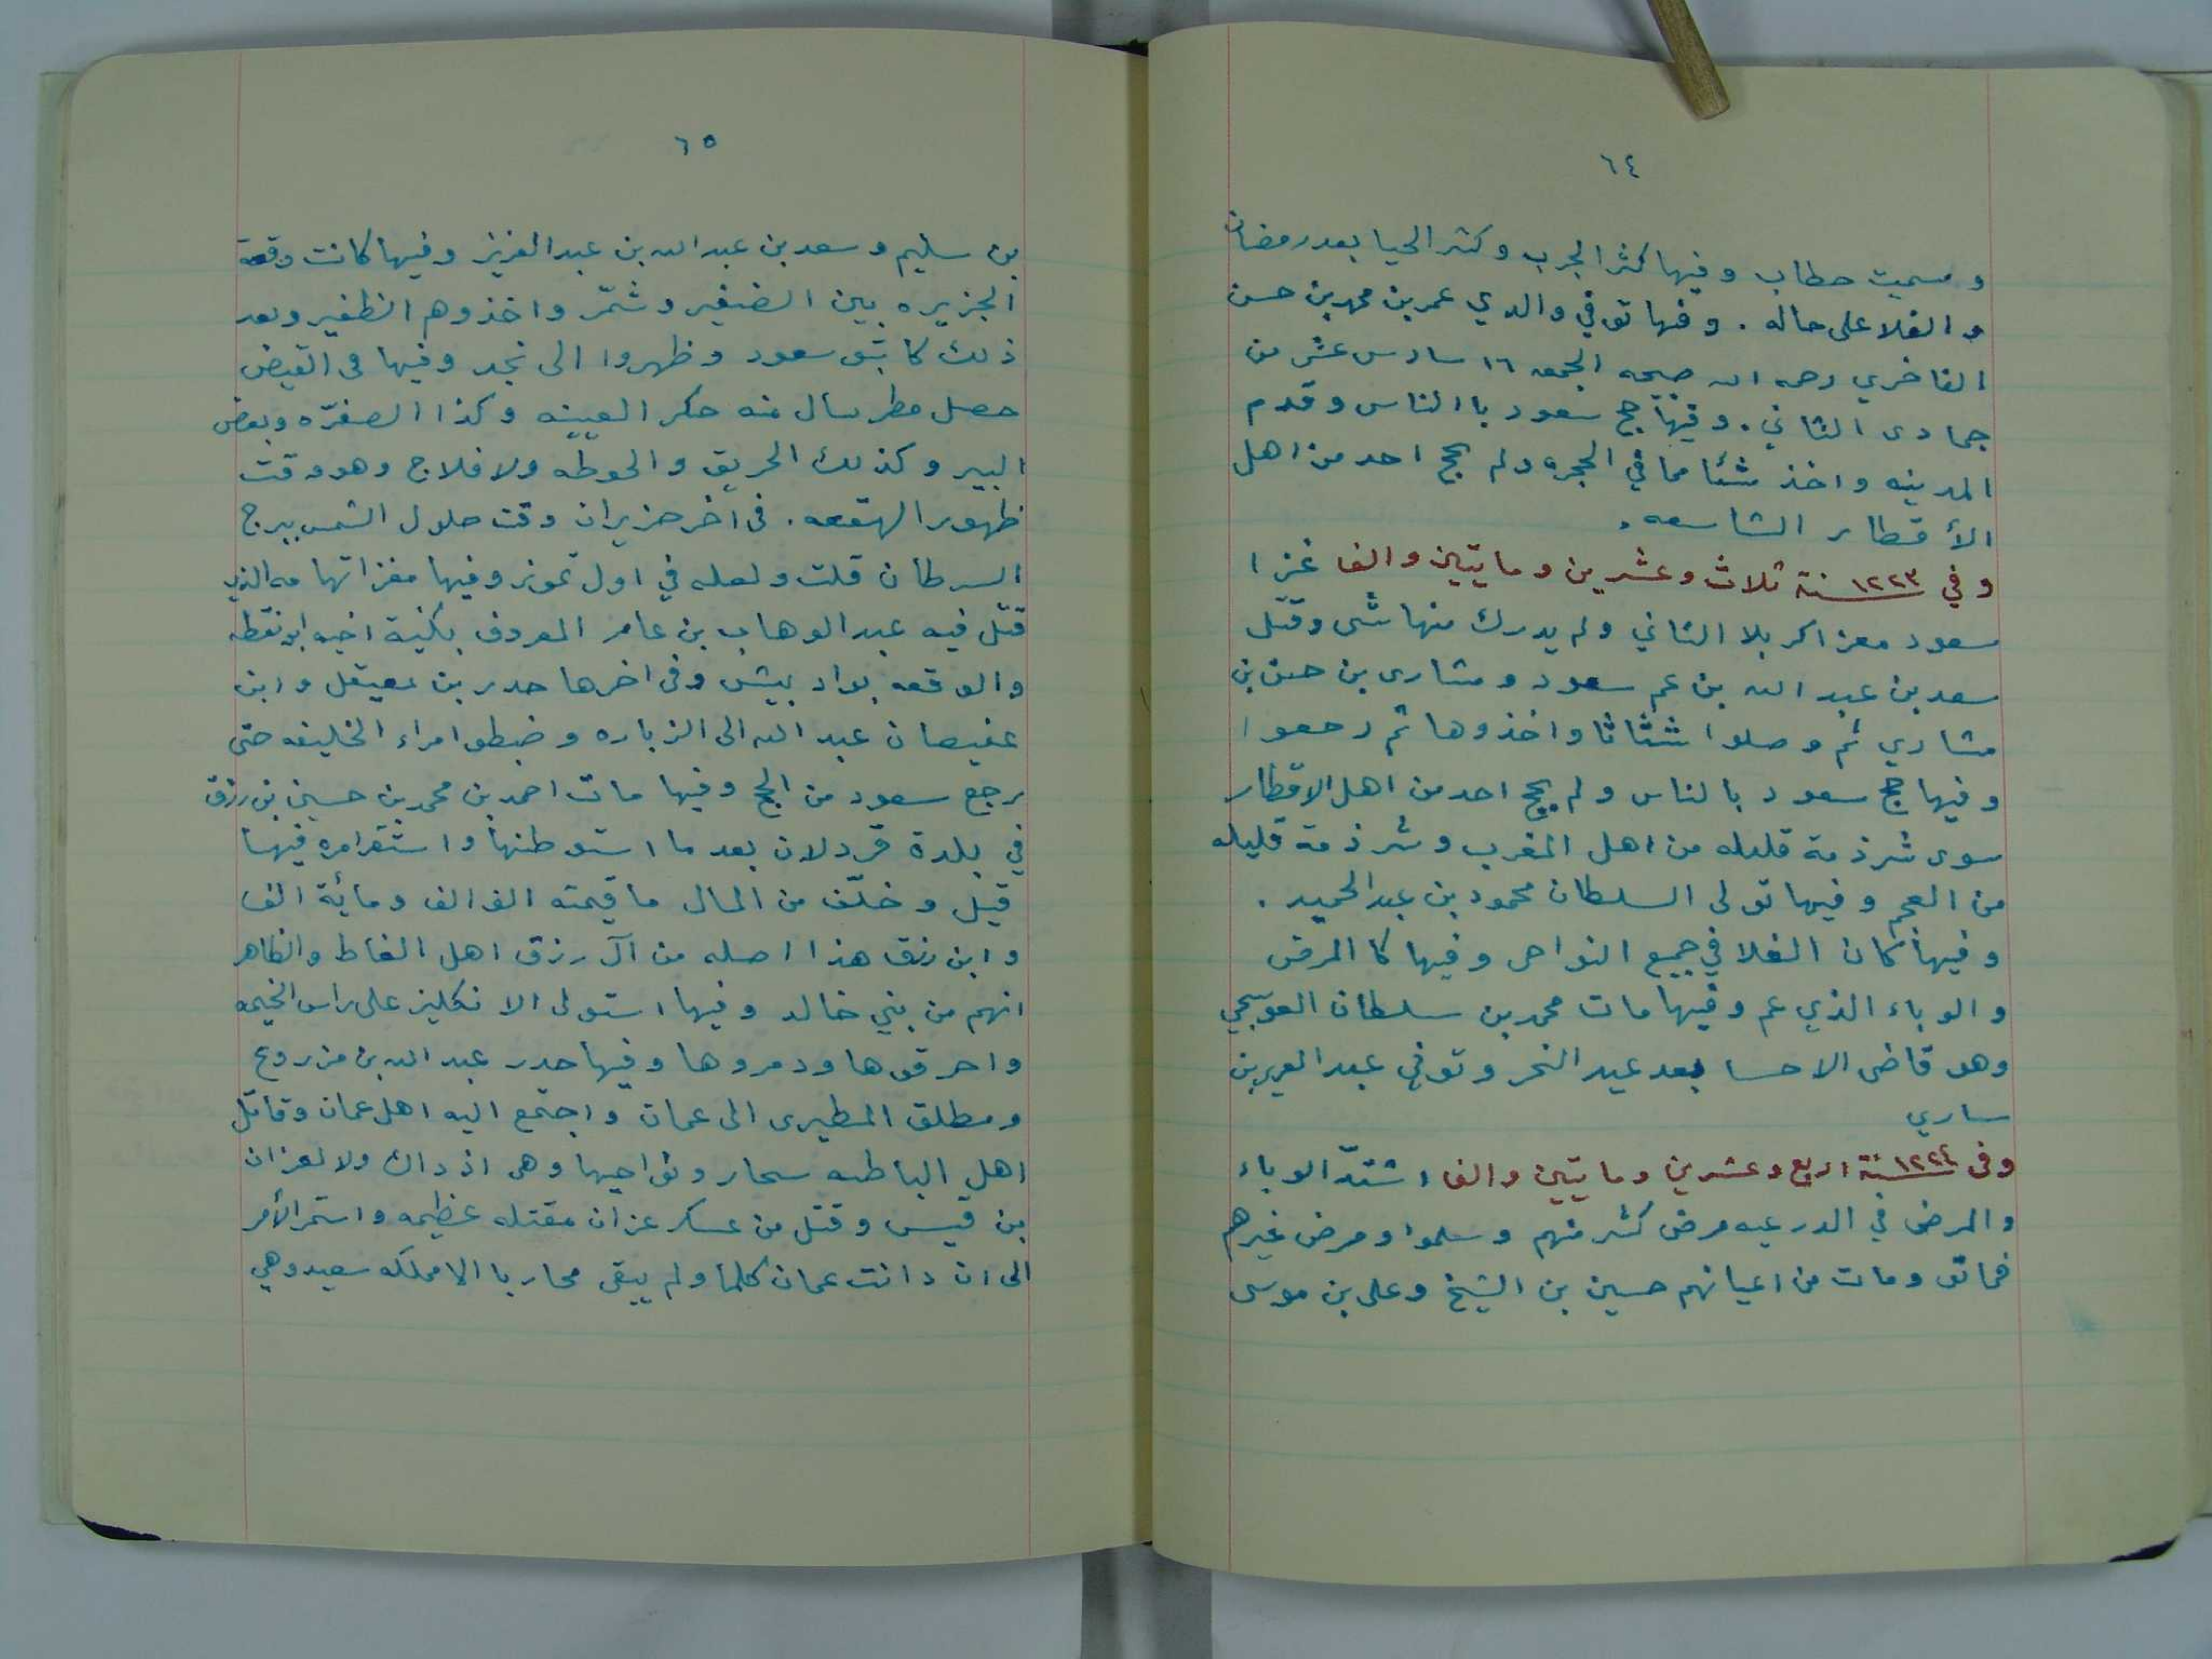 ٦٤
وسميت حطاب وفيها كثر الجرب وكثر الحيا بعد رمضان
والغلا على حاله . وفيها توفي والدي عمر بن محمد بن حسن
الفاخري رحمه الله صبيحه الجمعه ١٦ سادس عشر من
جمادى الثاني . وفيها حج سعود با الناس وقدم
المدينه واخذ شئا مما في الحجره ولم يحج احد من اهل
الأقطار الشاسعه .
وفي ١٢٢٣ سنة ثلاث وعشرين ومايتين والف غزا
سعود مغزا كربلا الثاني ولم يدرك منها شى وقتل
سعد بن عبد الله بن عم سعود ومشارى بن حسن بن
مشاري ثم وصلوا شثاثا واخذوها ثم رجعوا
وفيها حج سعود بالناس ولم يحج احد من اهل الاقطار
سوى شرذمة قليله من اهل المغرب وشرذمة قليله
من العجم وفيها تولى السلطان محمود بن عبد الحميد .
وفيها كان الغلا في جميع النواحى وفيها كا المرض
والوباء الذي عم وفيها مات محمد بن سلطان العوسجي
وهو قاضى الاحسا بعد عيد النحر وتوفي عبد العزيز بن
ساري
وفى ١٢٢٤ سنة اربع وعشرين ومايتين والف اشتدّ الوباء
والمرض في الدرعيه مرض كثير منهم وسلموا ومرض غيرهم
فماتو ومات من اعيانهم حسين بن الشيخ وعلى بن موسى
٦٥
بن سليم وسعد بن عبد الله بن عبد العزيز وفيها كانت وقعة
الجزيره بين الضفير وشمّر واخذوهم الظفير وبعد
ذلك كاتبو سعود وظهروا الى نجد وفيها فى القيض
حصل مطر سال منه حكر العيينه وكذا الصفرّه وبعض
البير وكذلك الحريق والحوطه ولافلاج وهو وقت
ظهور الهقعه . فى اخر حزيران وقت حلول الشمس ببرج
السرطان قلت ولعله في اول تموز وفيها مغزاتهامه الذي
قتل فيه عبد الوهاب بن عامر المعروف بكنية اخيه ابو نقطه
والوقعه بواد بيش وفى اخرها حدر بن معيقل وابن
عفيصان عبد الله الى الزباره وضبطو امراء الخليفه حتى
رجع سعود من الحج وفيها مات احمد بن محمد بن حسين بن رزق
في بلدة قردلان بعد ما استوطنها واستقر امره فيها
قيل وخلّف من المال ما قيمته الف الف ومائة الف
وابن رزق هذا اصله من آل رزق اهل الغاط والظاهر
انهم من بني خالد وفيها استولى الانكليز على راس الخيمه
واحرقوها ودمروها وفيها حدر عبد الله بن مزروع
ومطلق المطيرى الى عمان واجتمع اليه اهل عمان وقاتل
اهل الباطنه سحار ونواحيها وهى اذ داك ولا لعزان
بن قيس وقتل من عسكر عزان مقتله عظيمه واستمر الأمر
الى ان دانت عمان كلما ولم يبقى محاربا الا مملكه سعيد وهي